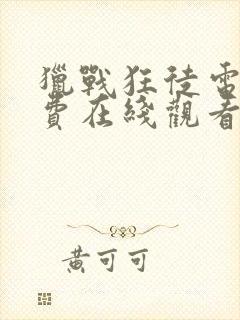 獵戰狂徒
費在綫觀看
黃可可